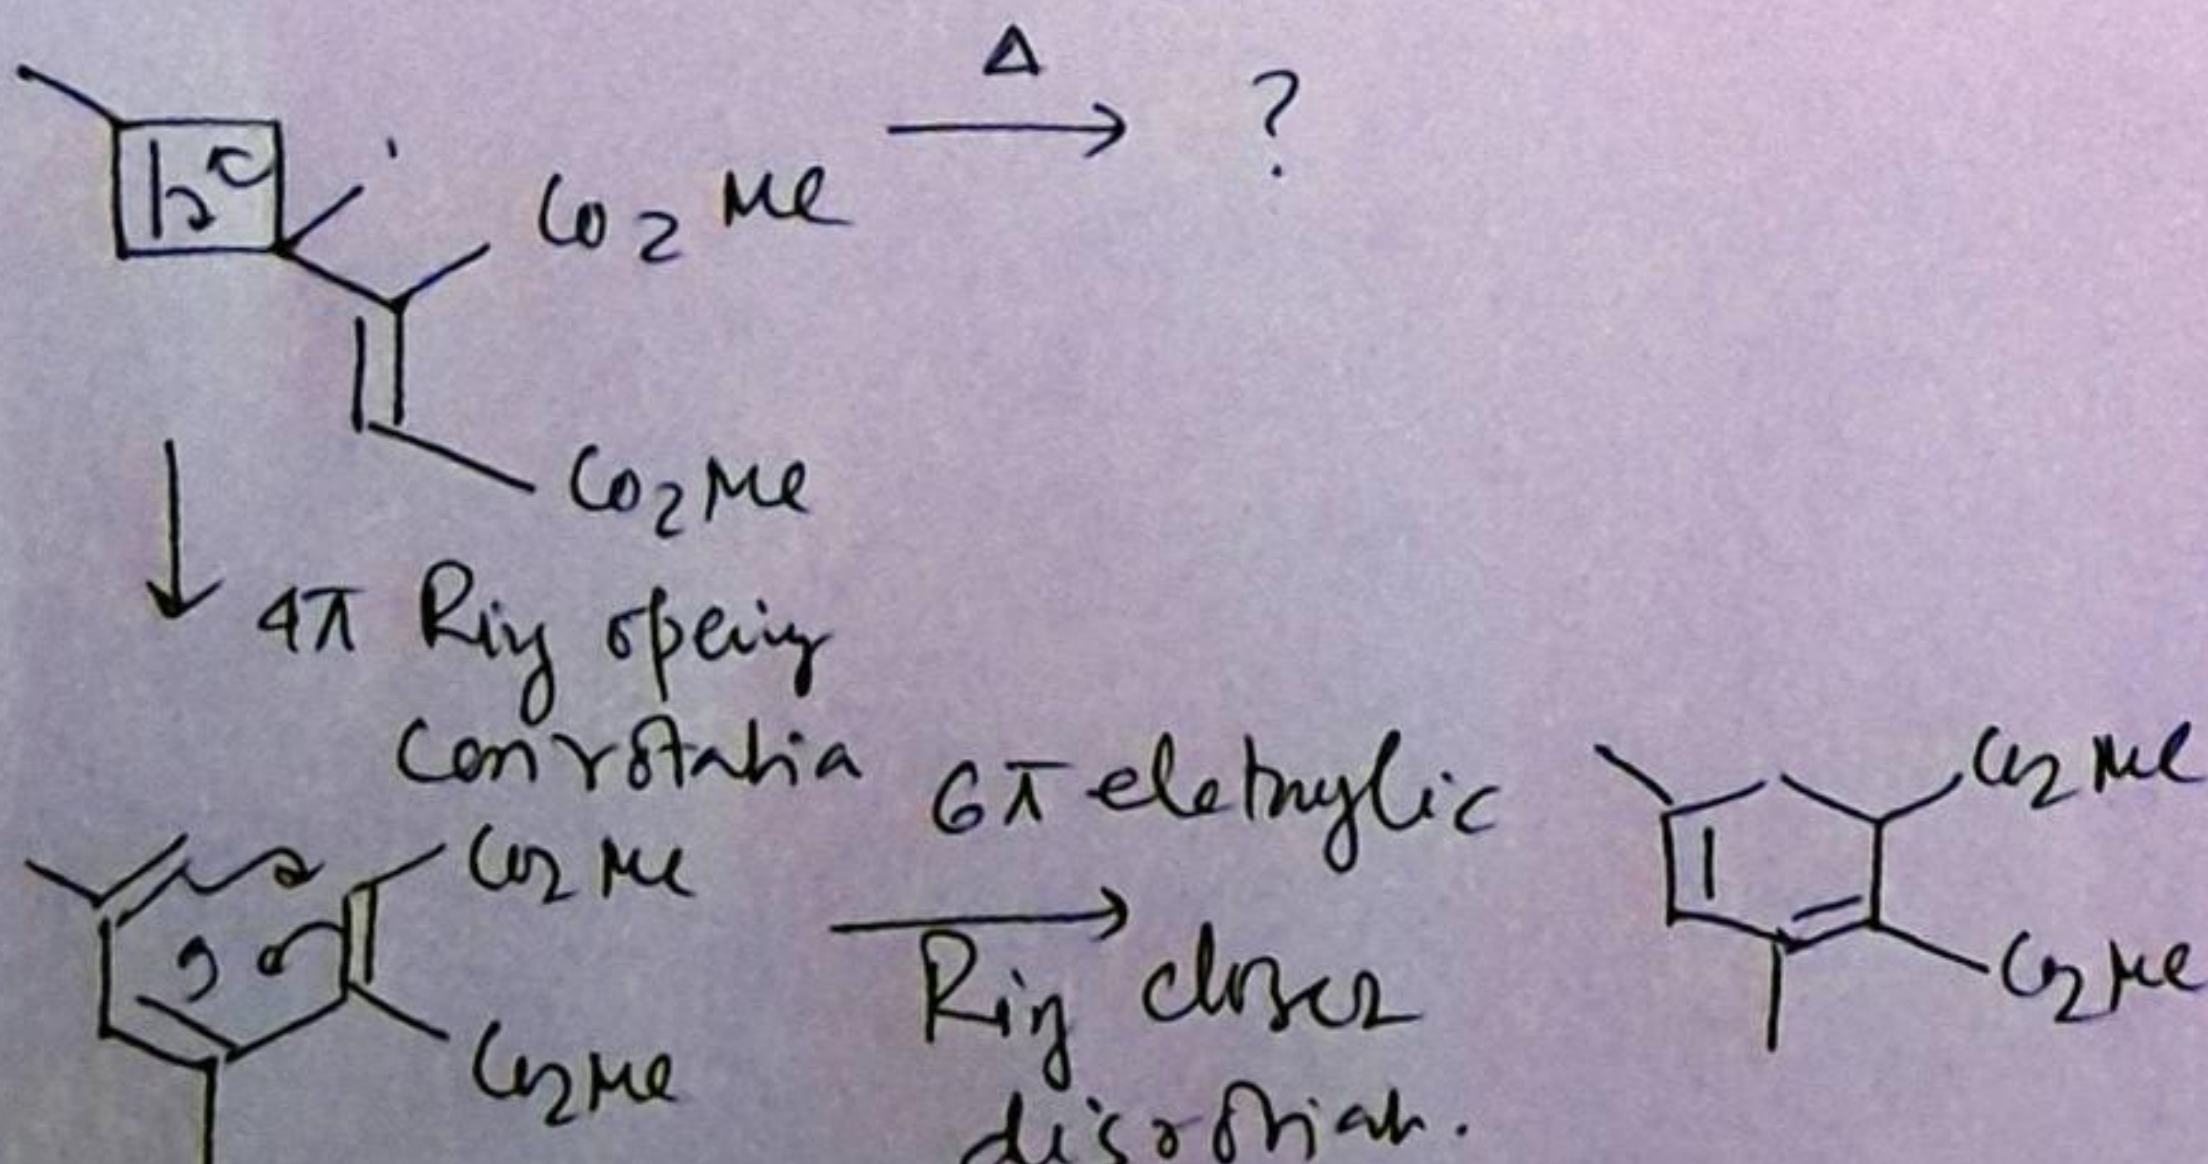 Δ
?
CO2Me
CO2Me
4π Ring opening
Conrotation
CO2Me
CO2Me
6π eletrylic
Ring closer
disrotriah.
CO2Me
CO2Me